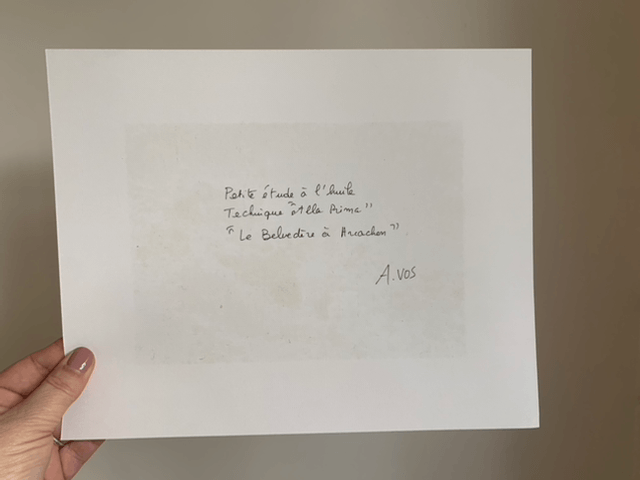 Petite étude à l'huile
Technique "Alla Prima"
"Le Belvedère à Arcachon"
A. VOS